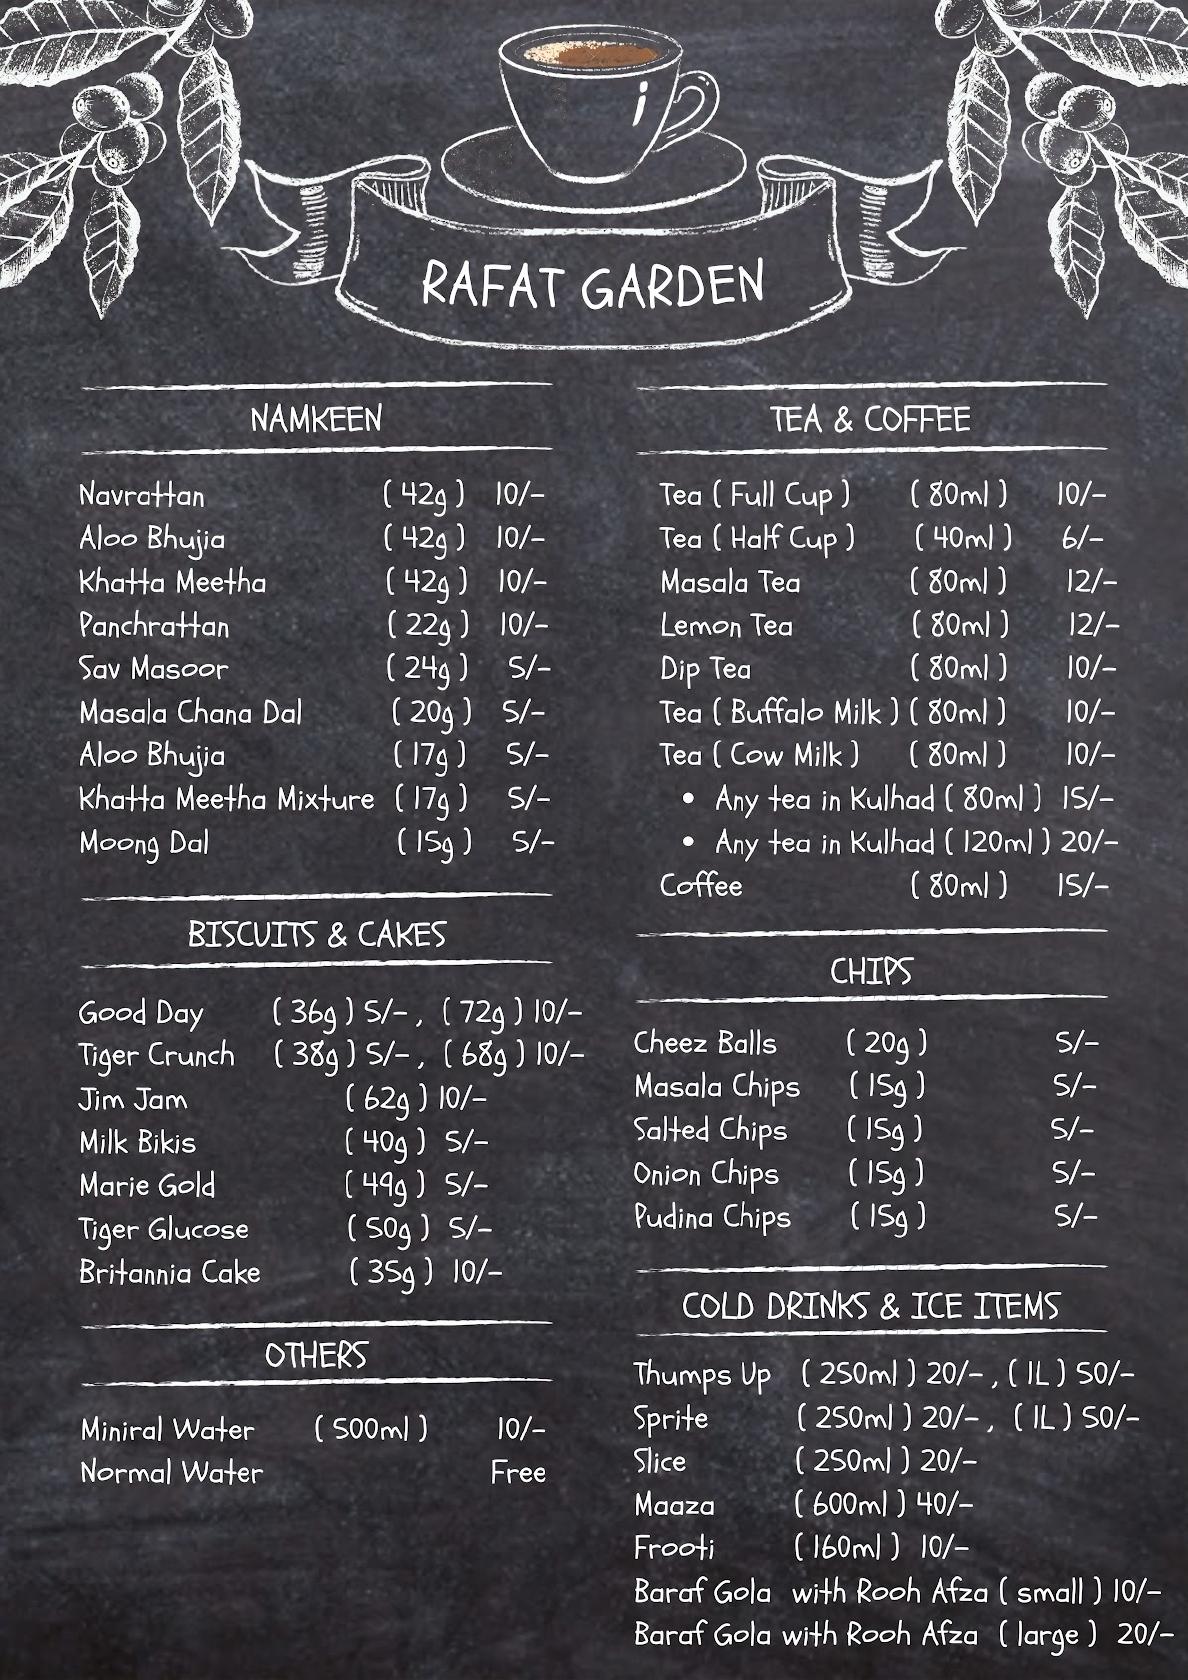 RAFAT GARDEN
NAMKEEN
Navrattan ( 42g ) 10/-
Aloo Bhujia ( 42g ) 10/-
Khatta Meetha ( 42g ) 10/-
Panchrattan ( 22g ) 10/-
Sav Masoor ( 24g ) 5/-
Masala Chana Dal ( 20g ) 5/-
Aloo Bhujia ( 17g ) 5/-
Khatta Meetha Mixture ( 17g ) 5/-
Moong Dal ( 15g ) 5/-
BISCUITS & CAKES
Good Day ( 36g ) 5/- , ( 72g ) 10/-
Tiger Crunch ( 38g ) 5/- , ( 68g ) 10/-
Jim Jam ( 62g ) 10/-
Milk Bikis ( 40g ) 5/-
Marie Gold ( 49g ) 5/-
Tiger Glucose ( 50g ) 5/-
Britannia Cake ( 35g ) 10/-
OTHERS
Miniral Water ( 500ml ) 10/-
Normal Water Free
TEA & COFFEE
Tea ( Full Cup ) ( 80ml ) 10/-
Tea ( Half Cup ) ( 40ml ) 6/-
Masala Tea ( 80ml ) 12/-
Lemon Tea ( 80ml ) 12/-
Dip Tea ( 80ml ) 10/-
Tea ( Buffalo Milk ) ( 80ml ) 10/-
Tea ( Cow Milk ) ( 80ml ) 10/-
• Any tea in Kulhad ( 80ml ) 15/-
• Any tea in Kulhad ( 120ml ) 20/-
Coffee ( 80ml ) 15/-
CHIPS
Cheez Balls ( 20g ) 5/-
Masala Chips ( 15g ) 5/-
Salted Chips ( 15g ) 5/-
Onion Chips ( 15g ) 5/-
Pudina Chips ( 15g ) 5/-
COLD DRINKS & ICE ITEMS
Thumps Up ( 250ml ) 20/- , ( 1L ) 50/-
Sprite ( 250ml ) 20/- , ( 1L ) 50/-
Slice ( 250ml ) 20/-
Maaza ( 600ml ) 40/-
Frooti ( 160ml ) 10/-
Baraf Gola with Rooh Afza ( small ) 10/-
Baraf Gola with Rooh Afza ( large ) 20/-